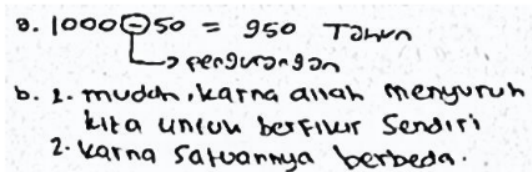 a. 1000 - 50 = 950 Tahun
→ pengurangan
b. 1. mudah, karna allah menyuruh
kita untuk berfikir sendiri
2. karna satuannya berbeda.